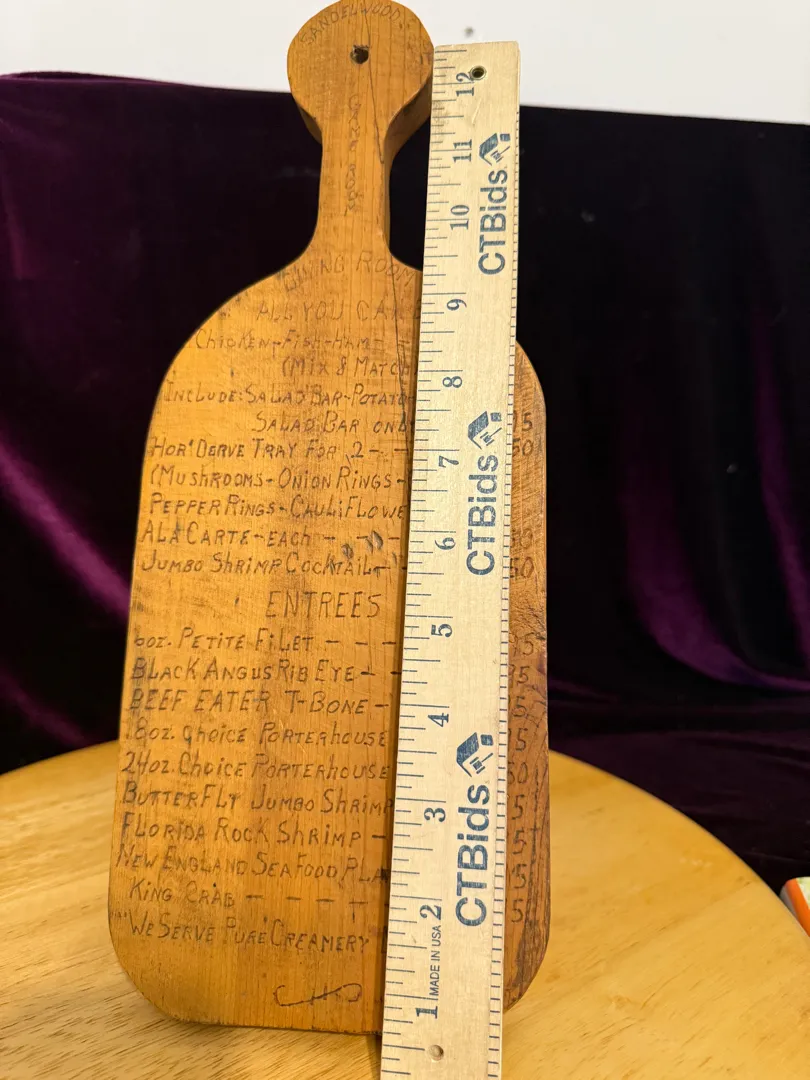 SANDELWOOD
LIVING ROOM
ALL YOU CAN
CHICKEN-FISH-HAM- -
(MIX & MATCH
INCLUDE: SALAD BAR-POTATO
SALAD BAR ONL 75
HOR'DERVE TRAY FOR 2- - 50
(MUSHROOMS-ONION RINGS-
PEPPER RINGS-CAULIFLOWE
ALA CARTE-EACH - - -
JUMBO SHRIMP COCKTAIL- 50
ENTREES
6OZ. PETITE FILET - - - 75
BLACK ANGUS RIB EYE- - 75
BEEF EATER T-BONE - 5
18OZ. CHOICE PORTERHOUSE 5
24OZ. CHOICE PORTERHOUSE 50
BUTTERFLY JUMBO SHRIMP 5
FLORIDA ROCK SHRIMP - 5
NEW ENGLAND SEAFOOD PLA 5
KING CRAB - - - - 5
"WE SERVE PURE CREAMERY
12
11
10
9
8
7
6
5
4
3
2
1
CTBids
CTBids
CTBids
MADE IN USA